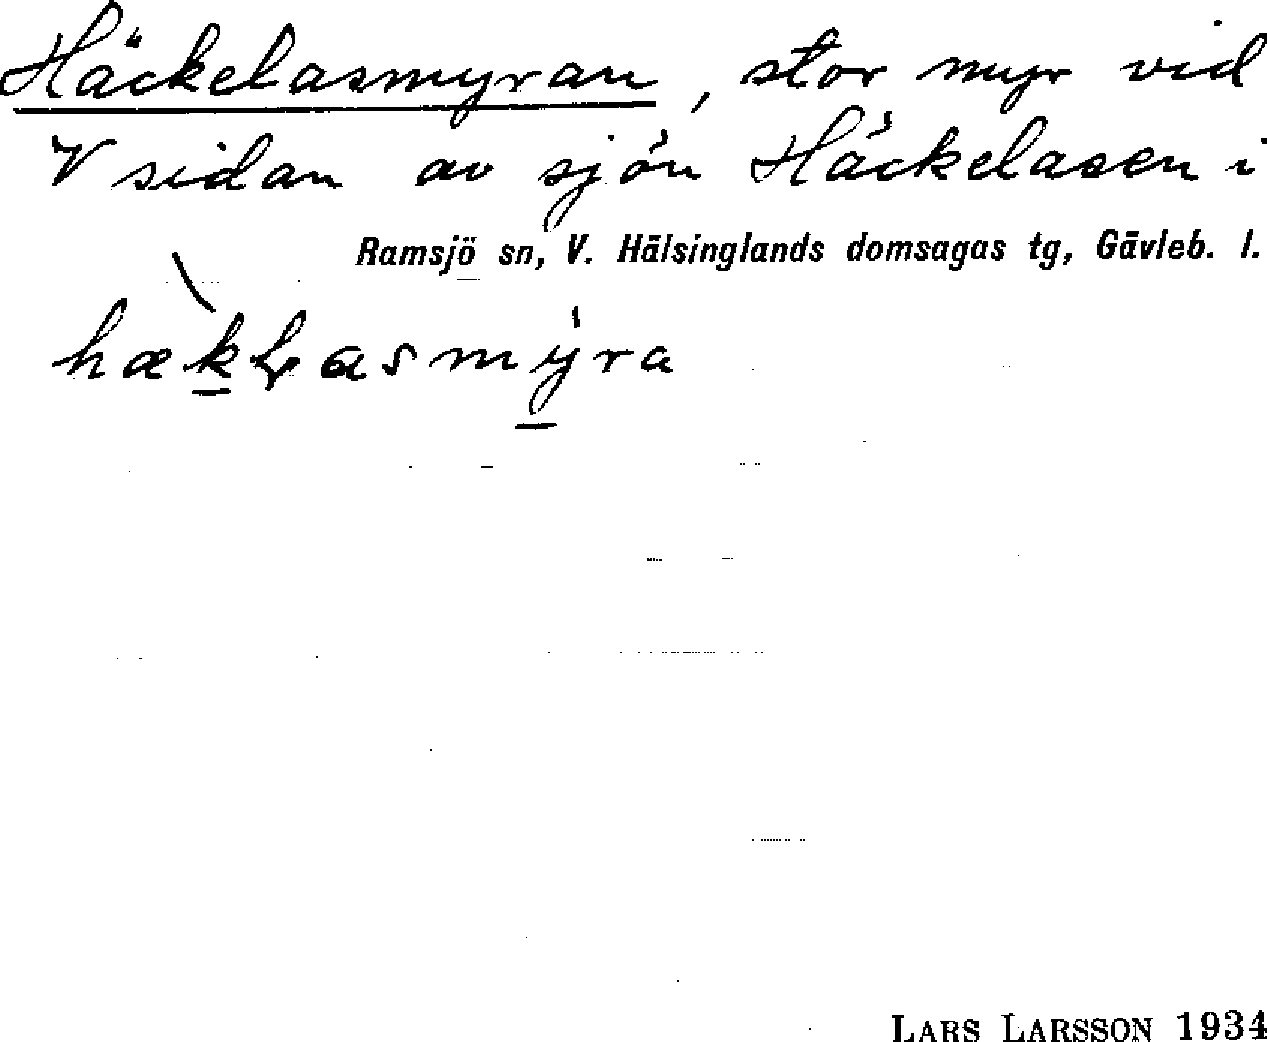 Häckelasmyran, stor myr vid
V sidan av sjön Häckelasen i
Ramsjö sn, V. Hälsinglands domsagas tg, Gävleb. l.
hækɽasmýra
LARS LARSSON 1934